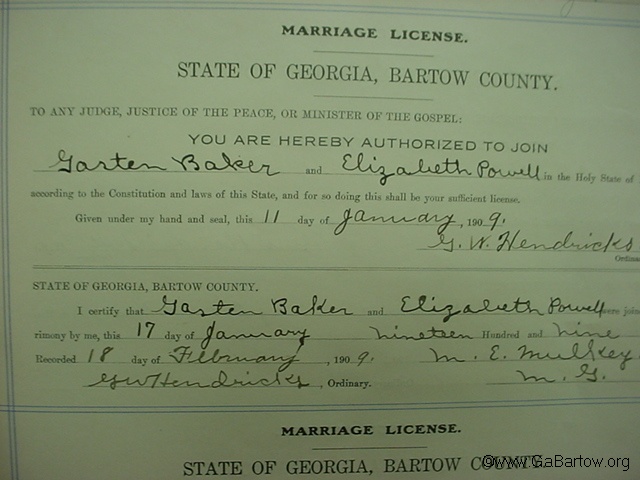 MARRIAGE LICENSE.
STATE OF GEORGIA, BARTOW COUNTY.
TO ANY JUDGE, JUSTICE OF THE PEACE, OR MINISTER OF THE GOSPEL:
YOU ARE HEREBY AUTHORIZED TO JOIN
Garten Baker and Elizabeth Powell in the Holy State of
according to the Constitution and laws of this State, and for so doing this shall be your sufficient license.
Given under my hand and seal, this 11 day of January, 1909.
G. W. Hendricks
Ordina
STATE OF GEORGIA, BARTOW COUNTY.
I certify that Garten Baker and Elizabeth Powell were join
rimony by me, this 17 day of January nineteen Hundred and nine
Recorded 18 day of February, 1909. M. E. Mulkey
GW Hendricks, Ordinary. M. G.
MARRIAGE LICENSE.
STATE OF GEORGIA, BARTOW COUNTY.
©www.GaBartow.org